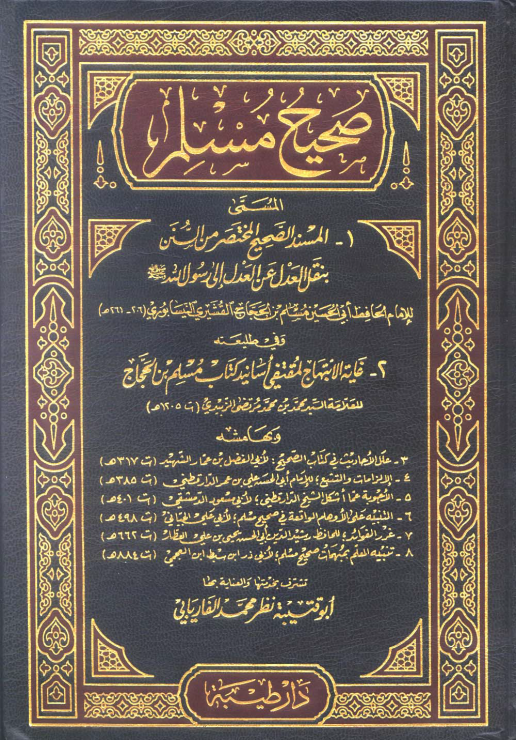 صحيح مسلم
المسمى
١- المسند الصحيح المختصر من السنن
بنقل العدل عن العدل إلى رسول الله ﷺ
للإمام الحافظ أبي الحسين مسلم بن الحجاج القشيري النيسابوري (٢٠٦-٢٦١هـ)
وفي طليعته
٢- غاية الابتهاج لمقتفي أسانيد كتاب مسلم بن الحجاج
للعلامة السيد محمد بن محمد مرتضى الزبيدي (ت ١٢٠٥هـ)
وبهامشه
٣- علل الأحاديث في كتاب الصحيح: لأبي الفضل بن عمار الشهيد (ت ٣١٧هـ)
٤- الإلزامات والتتبع: للإمام أبي الحسن علي بن عمر الدارقطني (ت ٣٨٥هـ)
٥- الأجوبة عما أشكل الشيخ الدارقطني: لأبي مسعود الدمشقي (ت ٤٠١هـ)
٦- التنبيه على الأوهام الواقعة في صحيح مسلم: لأبي علي الجياني (ت ٤٩٨هـ)
٧- غرر الفوائد: للحافظ رشيد الدين أبي الحسين يحيى بن علي العطار (ت ٦٦٢هـ)
٨- تنبيه المعلم بمبهمات صحيح مسلم: لأبي ذر ابن سبط ابن العجمي (ت ٨٨٤هـ)
تشرف بخدمتها والعناية بها
أبو قتيبة نظر محمد الفاريابي
دار طيبة